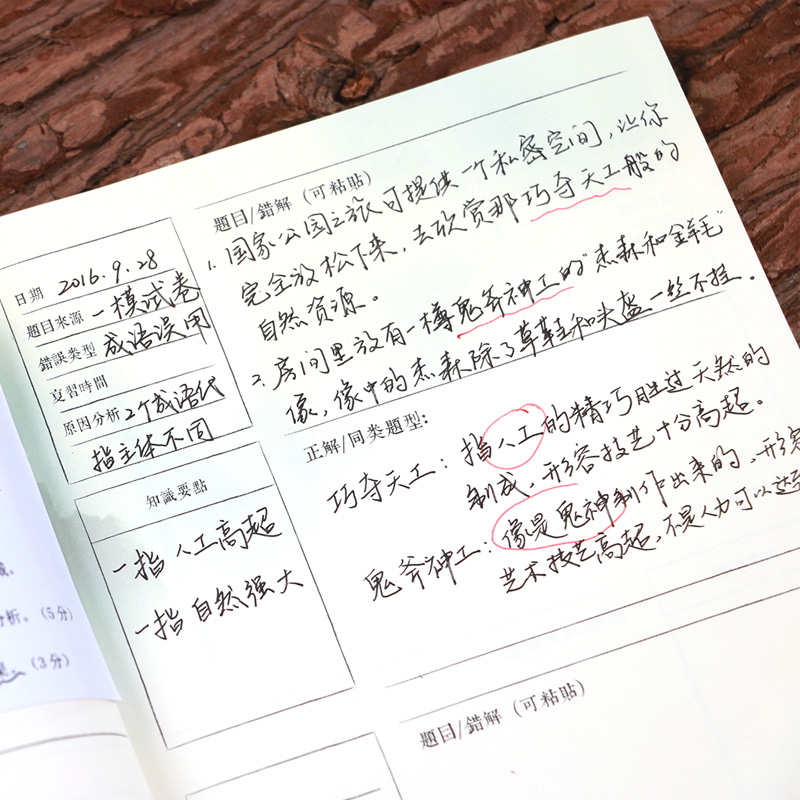 日期 2016.9.28
題目来源 一模试卷
錯誤类型 成语误用
夏習時間
原因分析 2个成语代
指主体不同
知識要點
一指 人工高超
一指 自然强大
題目/錯解（可粘貼）
1. 国家公园之旅可提供一个私密空间，让你
完全放松下来，去欣赏那巧夺天工般的
自然资源。
2. 房间里放有一樽鬼斧神工的"杰森和金羊毛"
像，像中的杰森除了草鞋和头盔一丝不挂。
正解/同类题型：
巧夺天工：指人工的精巧胜过天然的
制成，形容技艺十分高超。
鬼斧神工：像是鬼神制作出来的，形容
艺术技艺高超，不是人力可以达到
題目/錯解（可粘貼）
析。（5分）
（3分）